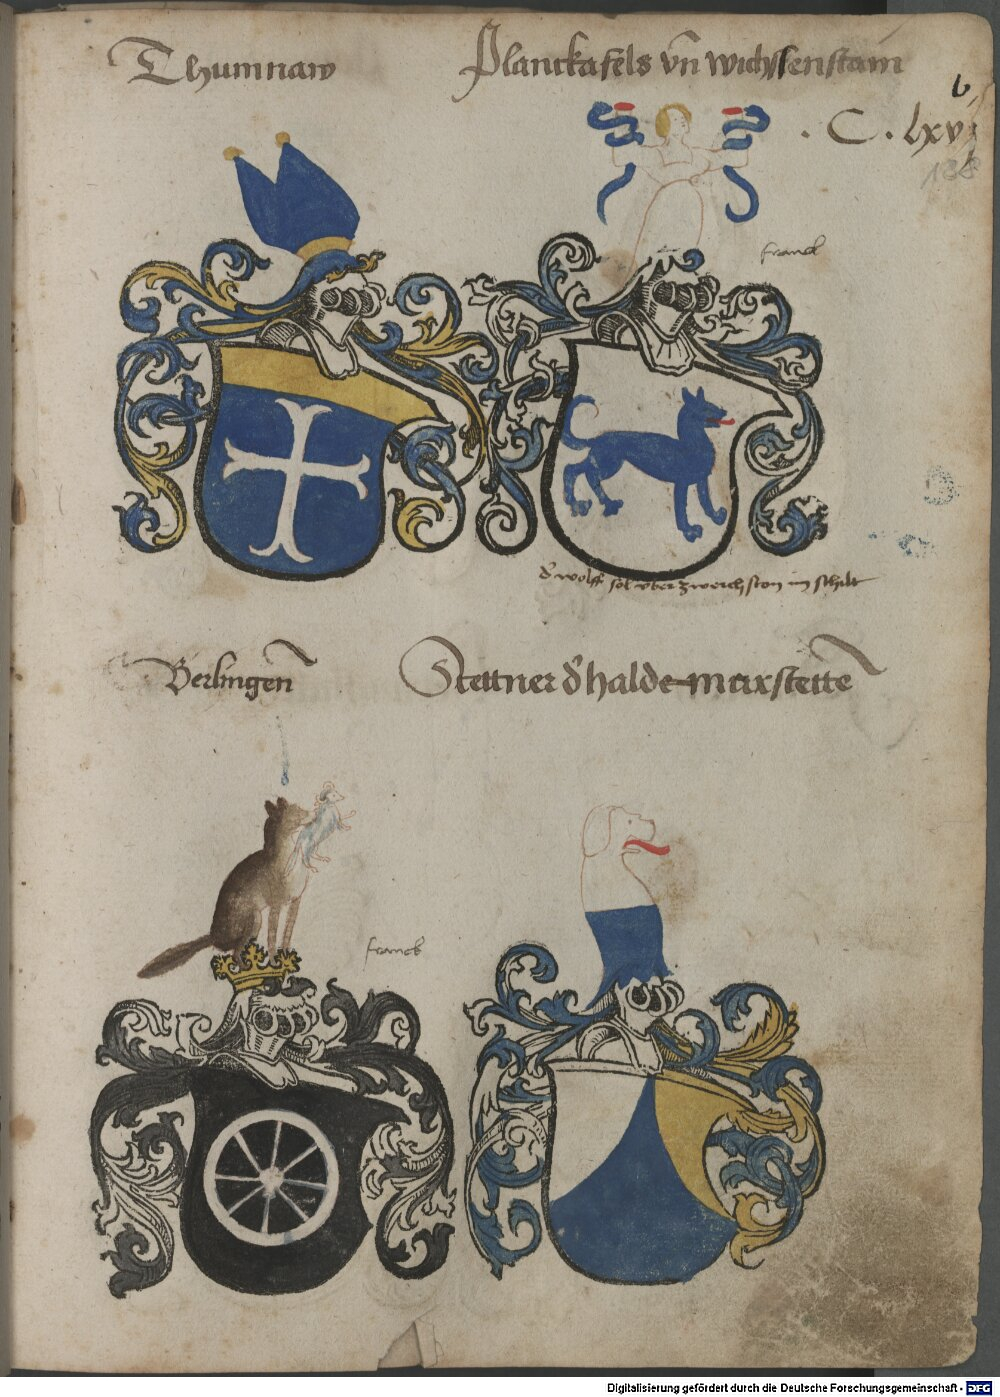 Thumnaw
Planckafels vñ wichssenstain
b
. C . lxvj
138
franck
d' wolff sol vber zwerch ston im schilt
Berlingeñ
Stettner d' halde maxsteteñ
franck
Digitalisierung gefördert durch die Deutsche Forschungsgemeinschaft - DFG